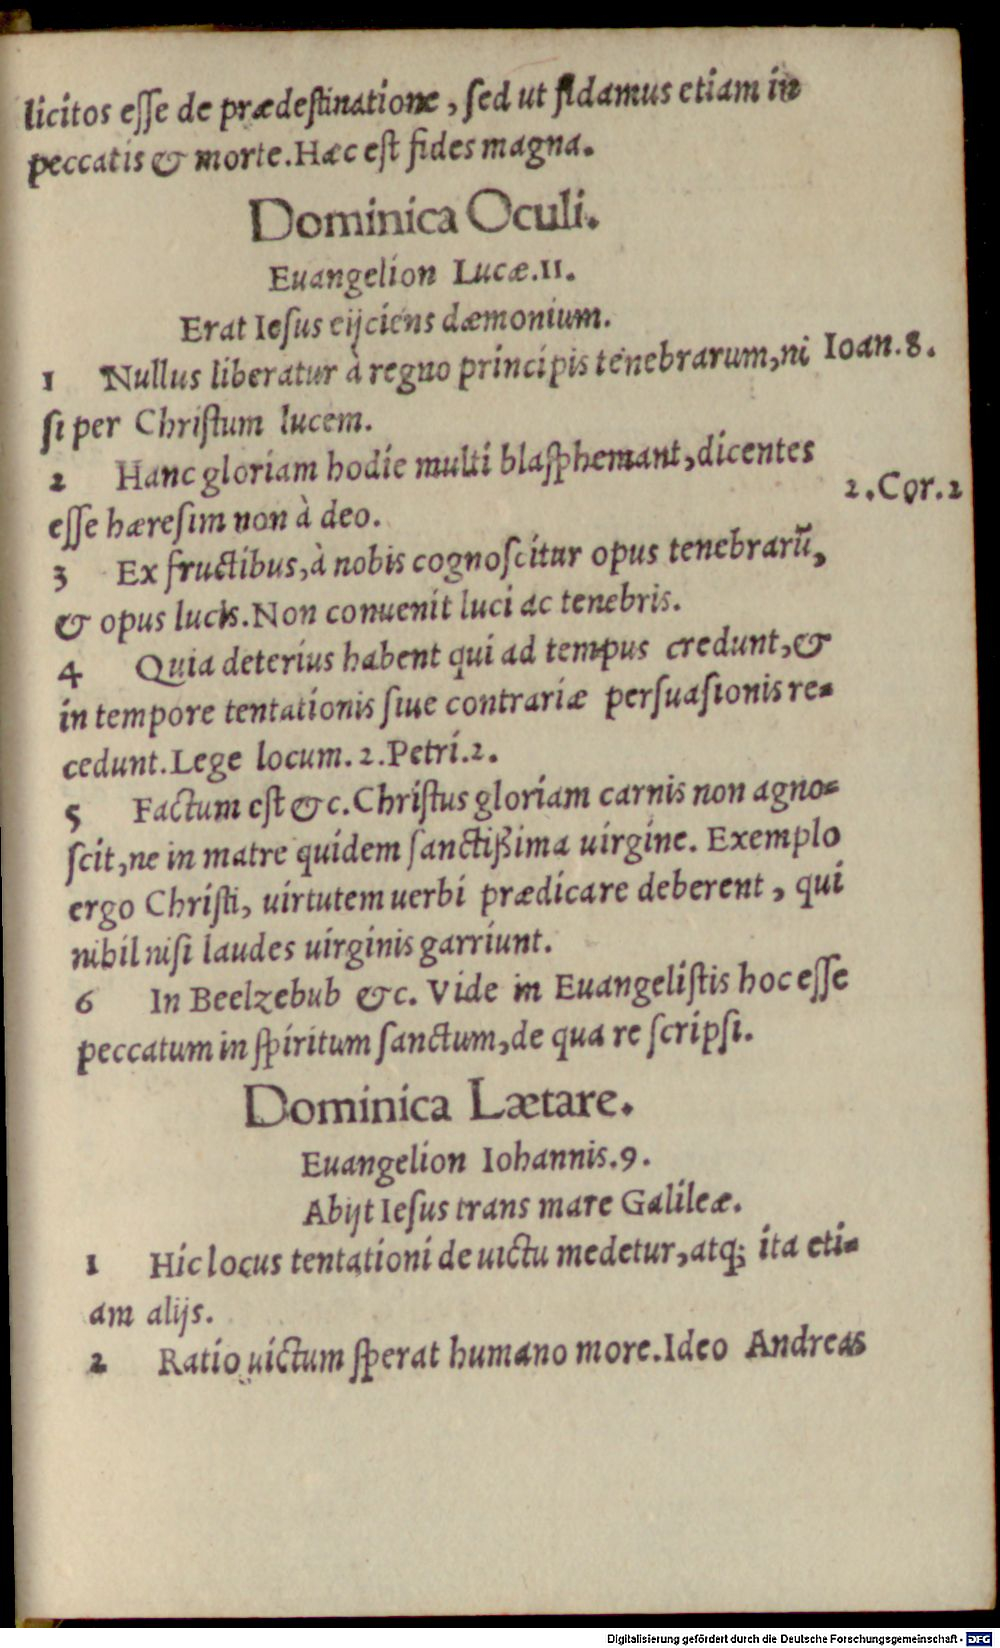 licitos esse de prædestinatione, sed ut fidamus etiam in
peccatis & morte. Hæc est fides magna.
Dominica Oculi.
Euangelion Lucæ. 11.
Erat Iesus eijciens dæmonium.
1 Nullus liberatur à regno principis tenebrarum, ni Ioan. 8.
si per Christum lucem.
2 Hanc gloriam hodie multi blasphemant, dicentes
2. Cor. 2
esse hæresim non à deo.
3 Ex fructibus, à nobis cognoscitur opus tenebrarũ,
& opus lucis. Non conuenit luci ac tenebris.
4 Quia deterius habent qui ad tempus credunt, &
in tempore tentationis siue contrariæ persuasionis re=
cedunt. Lege locum. 2. Petri. 2.
5 Factum est &c. Christus gloriam carnis non agno=
scit, ne in matre quidem sanctißima uirgine. Exemplo
ergo Christi, uirtutem uerbi prædicare deberent, qui
nihil nisi laudes uirginis garriunt.
6 In Beelzebub &c. Vide in Euangelistis hoc esse
peccatum in spiritum sanctum, de qua re scripsi.
Dominica Lætare.
Euangelion Iohannis. 9.
Abijt Iesus trans mare Galileæ.
1 Hic locus tentationi de uictu medetur, atq; ita eti=
am alijs.
2 Ratio uictum sperat humano more. Ideo Andreas
Digitalisierung gefördert durch die Deutsche Forschungsgemeinschaft - DFG